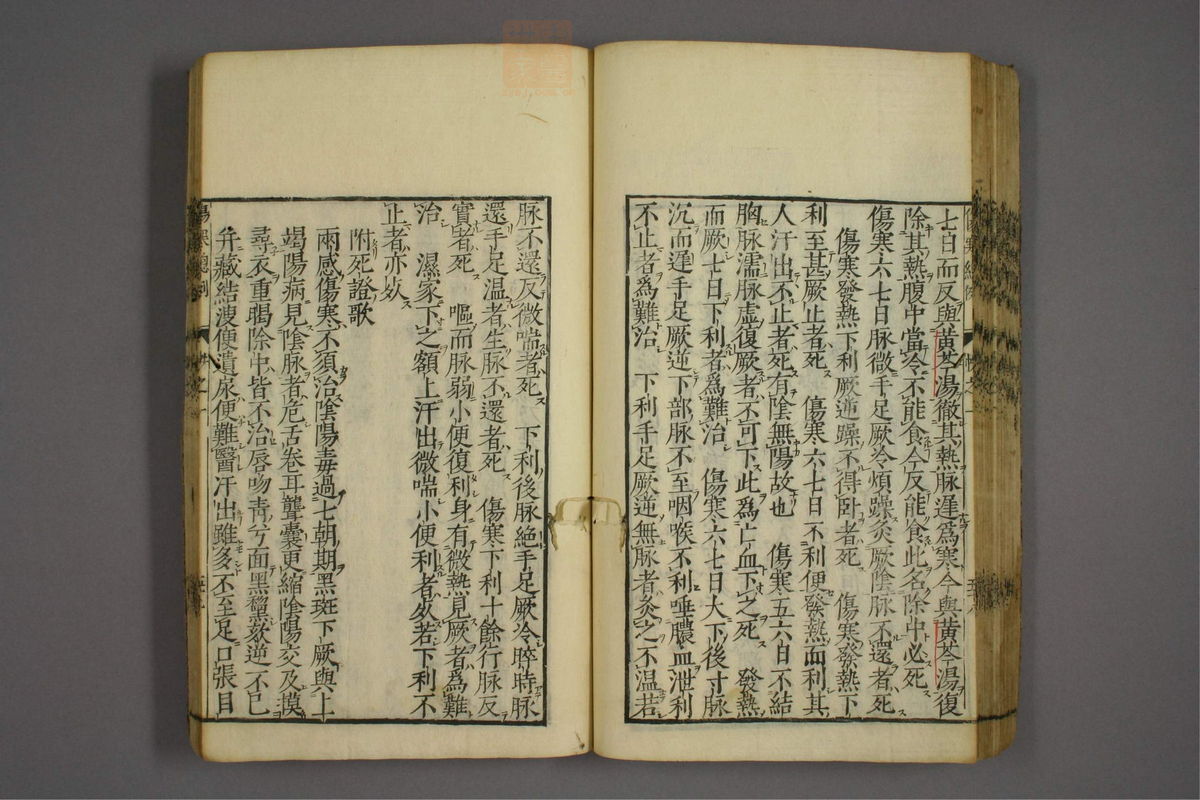 七日而反與黃芩湯徹其熱脉遅爲寒今與黃芩湯復
除其熱腹中當冷不能食今反能食此名除中必死
傷寒六七日脉微手足厥冷煩躁灸厥陰脉不還者死
傷寒發熱下利厥逆躁不得臥者死　傷寒發熱下
利至甚厥止者死　傷寒六七日不利便發熱而利其
人汗出不止者死有陰無陽故也　傷寒五六日不結
胸脉濡脉虛復厥者不可下此爲亡血下之死　發熱
而厥七日下利者爲難治　傷寒六七日大下後寸脉
沉而遅手足厥逆下部脉不至咽喉不利唾膿血泄利
不止者爲難治　下利手足厥逆無脉者灸之不温若
脉不還反微喘者死　下利後脉絕手足厥冷晬時脉
還手足温者生脉不還者死　傷寒下利十餘行脉反
實者死　嘔而脉弱小便復利身有微熱見厥者爲難
治　濕家下之額上汗出微喘小便利者死若下利不
止者亦死
附死證歌
兩感傷寒不須治陰陽毒過七朝期黑斑下厥與上
竭陽病見陰脉者危舌卷耳聾囊更縮陰陽交及摸
尋衣重暍除中皆不治唇吻青兮面黑黧欬逆不已
幷藏結溲便遺尿便難醫汗出雖多不至足口張目